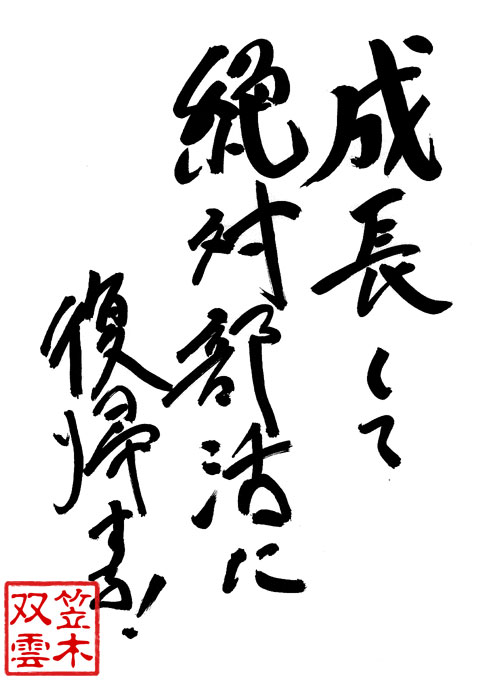 成長して
絶対部活に
復帰する!
笠木
双雲